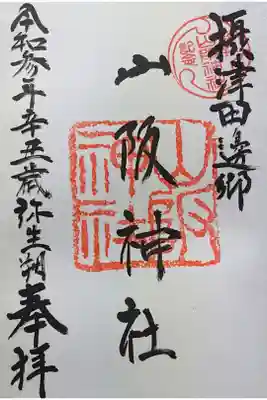 摂津田邊郷
山阪神社
山阪神社
令和参年辛丑歳弥生朔
奉拝